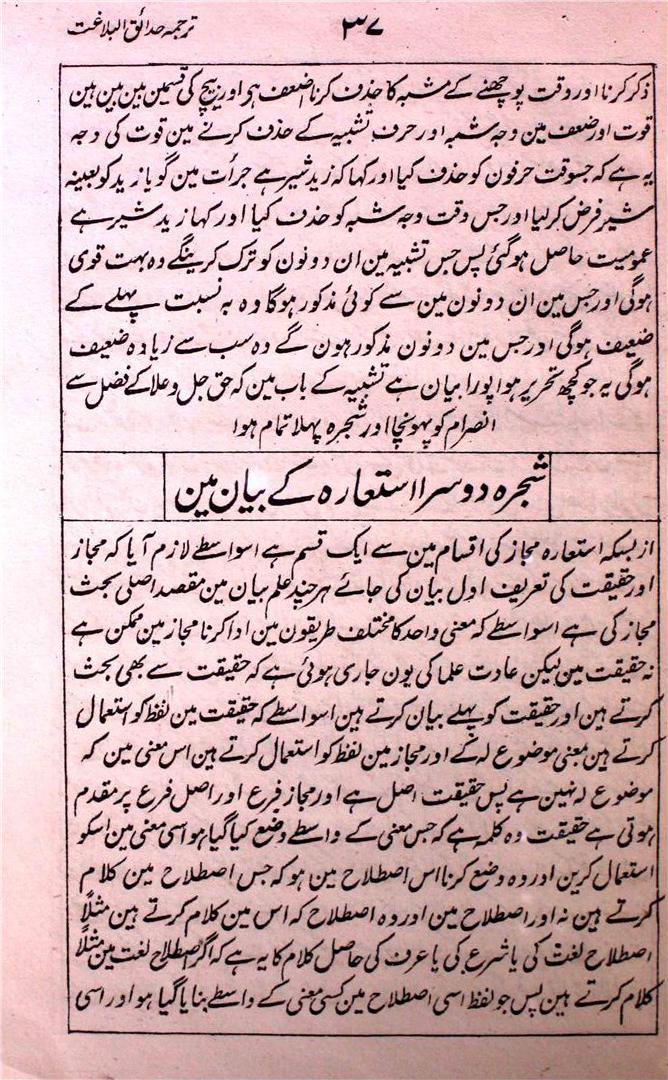 ترجمہ حدائق البلاغت
۳۷
ذکر کرنا اور وقت پوچھنے کے مشبہ کا حذف کرنا اضعف ہی اور بیچ کی قسمین بین بین ہین
قوت اور ضعف مین وجہ شبہ اور حرف تشبیہ کے حذف کرنے مین قوت کی وجہ
یہ ہے کہ جسوقت حرفون کو حذف کیا اور کہا کہ زید شیر ہے جرأت مین گویا زید کو بعینہ
شیر فرض کر لیا اور جس وقت وجہ شبہ کو حذف کیا اور کہا زید شیر ہے
عمومیت حاصل ہو گئی پس جس تشبیہ مین ان دونون کو ترک کرینگے وہ بہت قوی
ہوگی اور جس مین ان دونون مین سے کوئی مذکور ہوگا وہ بہ نسبت پہلے کے
ضعیف ہوگی اور جس مین دونون مذکور ہون گے وہ سب سے زیادہ ضعیف
ہوگی یہ جو کچھ تحریر ہوا پورا بیان ہے تشبیہ کے باب مین کہ حق جل و علا کے فضل سے
انصرام کو پہونچا اور شجرہ پہلا تمام ہوا
شجرہ دوسرا استعارہ کے بیان مین
از بسکہ استعارہ مجاز کی اقسام مین سے ایک قسم ہے اسواسطے لازم آیا کہ مجاز
اور حقیقت کی تعریف اول بیان کی جائے ہر چند علم بیان مین مقصد اصلی بحث
مجاز کی ہے اسواسطے کہ معنی واحد کا مختلف طریقون مین ادا کرنا مجاز مین ممکن ہے
نہ حقیقت مین لیکن عادت علما کی یون جاری ہوئی ہے کہ حقیقت سے بھی بحث
کرتے ہین اور حقیقت کو پہلے بیان کرتے ہین اسواسطے کہ حقیقت مین لفظ کو استعمال
کرتے ہین معنی موضوع لہ کے اور مجاز مین لفظ کو استعمال کرتے ہین اس معنی مین کہ
موضوع لہ نہین ہے پس حقیقت اصل ہے اور مجاز فرع اور اصل فرع پر مقدم
ہوتی ہے حقیقت وہ کلمہ ہے کہ جس معنی کے واسطے وضع کیا گیا ہو اسی معنی مین اسکو
استعمال کرین اور وہ وضع کرنا اس اصطلاح مین ہو کہ جس اصطلاح مین کلام
کرتے ہین نہ اور اصطلاح مین اور وہ اصطلاح کہ اس مین کلام کرتے ہین مثلًا
اصطلاح لغت کی یا شرع کی یا عرف کی حاصل کلام کا یہ ہے کہ اگر اصطلاح لغت مین مثلًا
کلام کرتے ہین پس جو لفظ اسی اصطلاح مین کسی معنی کے واسطے بنایا گیا ہو اور اسی